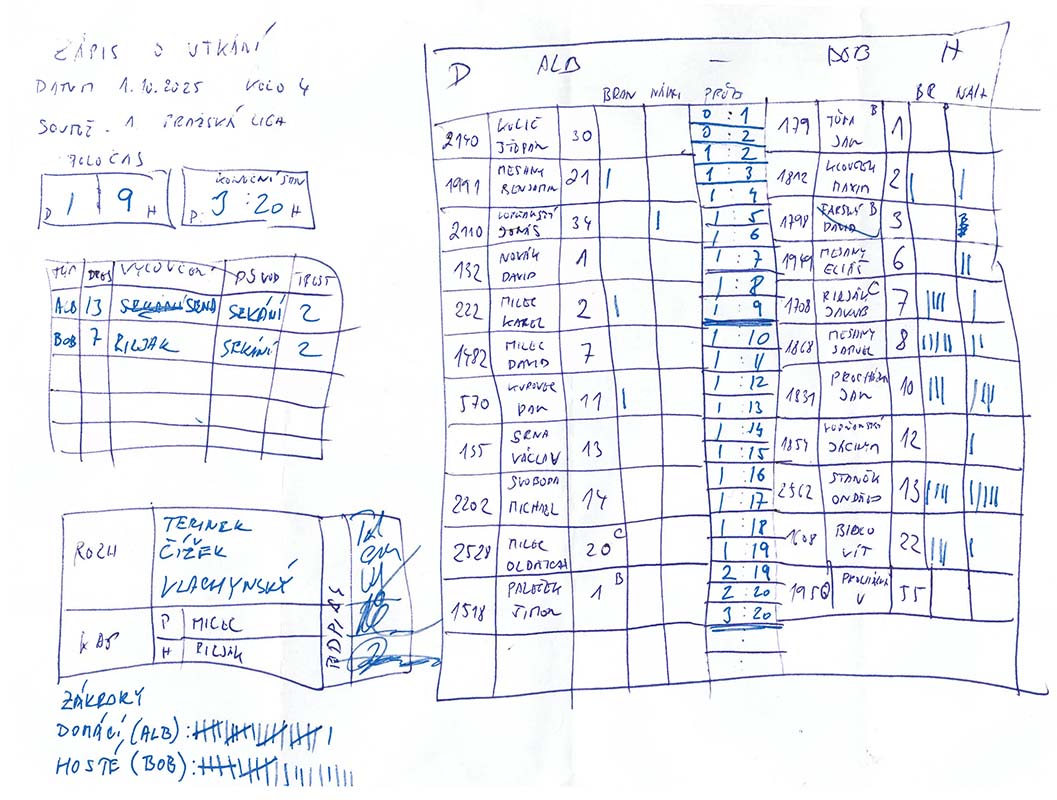 ZÁPIS O UTKÁNÍ
DATUM 1.10.2025 KOLO 4
SOUTĚŽ - 1 PRAŽSKÁ LIGA
POLOČAS
D 1 9 H
KONEČNÝ STAV
P: 3 : 20 H
TÝM DRES VYLOUČENÍ DŮVOD TREST
ALB 13 SRNA SEKÁNÍ 2
BOB 7 RILJAK SEKÁNÍ 2
ROZH
TERINEK
ČÍŽEK
VLACHYNSKÝ
KAP
P MILEC
H RILJÁK
PODPISY
ZÁKROKY
DOMÁCÍ (ALB):
HOSTÉ (BOB):
D ALB – BOB H
BRAN NÁHR PRŮB BR NÁH
2140 KULIČ ŠTĚPÁN 30
1991 MESANY BENJAMIN 21 I
2110 JONÁŠ 34 I
132 NOVÁK DAVID 1
222 MILEC KAREL 2 I
1482 MILEC DAVID 7
570 DAN 11 I
135 SRNA VÁCLAV 13
2202 SVOBODA MICHAEL 14
2528 MILEC OLDŘICH 20 C
1518 PALEČEK ŠIMON 1 B
0 : 1
0 : 2
1 : 2
1 : 3
1 : 4
1 : 5
1 : 6
1 : 7
1 : 8
1 : 9
1 : 10
1 : 11
1 : 12
1 : 13
1 : 14
1 : 15
1 : 16
1 : 17
1 : 18
1 : 19
2 : 19
2 : 20
3 : 20
:
179 TŮMA JAN B 1
1812 MAXIM 2 I I
1798 FARSKÝ DAVID B 3
1949 MESANY ELIÁŠ 6 II
1708 RILJÁK JAKUB C 7 IIII I
1868 MESANY SAMUEL 8 IIIII II
1831 PROCHÁZKA JAN 10 III IIII
1859 JÁCHYM 12 I
2562 STANĚK ONDŘEJ 13 IIII IIIII
VÍT 22 III I
V 55